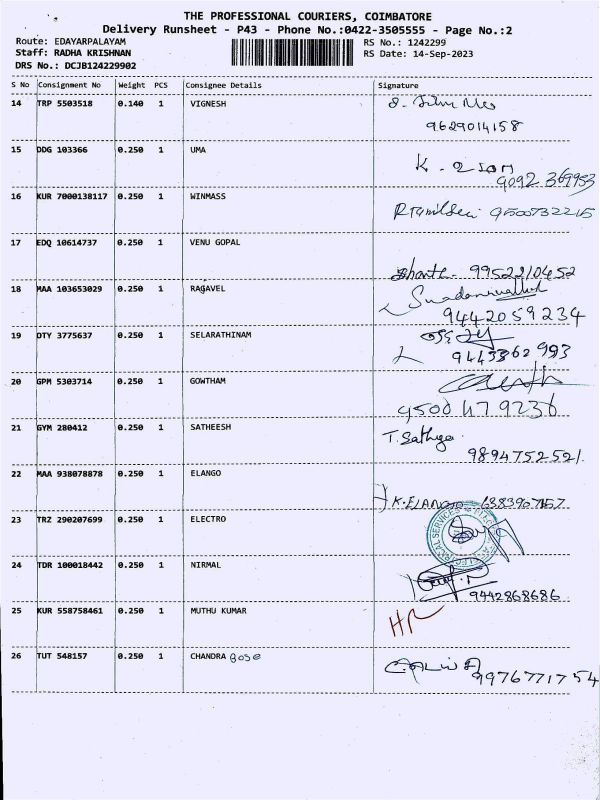 THE PROFESSIONAL COURIERS, COIMBATORE
Delivery Runsheet - P43 - Phone No.:0422-3505555 - Page No.:2
Route: EDAYARPALAYAM
RS No.: 1242299
Staff: RADHA KRISHNAN
RS Date: 14-Sep-2023
DRS No.: DCJB124229902
S No Consignment No Weight PCS Consignee Details Signature
14 TRP 5503518 0.140 1 VIGNESH
9629014158
15 DDG 103366 0.250 1 UMA
K.
9092 369953
16 KUR 7000138117 0.250 1 WINMASS
R Tamilselvi 9500732215
17 EDQ 10614737 0.250 1 VENU GOPAL
9952210452
18 MAA 103653029 0.250 1 RAGAVEL
9442059234
19 DTY 3775637 0.250 1 SELARATHINAM
9443362993
20 GPM 5303714 0.250 1 GOWTHAM
9500479236
21 GYM 280412 0.250 1 SATHEESH
T. Sathya
9894752521.
22 MAA 938078878 0.250 1 ELANGO
K.ELANGO 6383907157
23 TRZ 290207699 0.250 1 ELECTRO
24 TDR 100018442 0.250 1 NIRMAL
9442868686
25 KUR 558758461 0.250 1 MUTHU KUMAR
HR
26 TUT 548157 0.250 1 CHANDRA Bose
9976771754